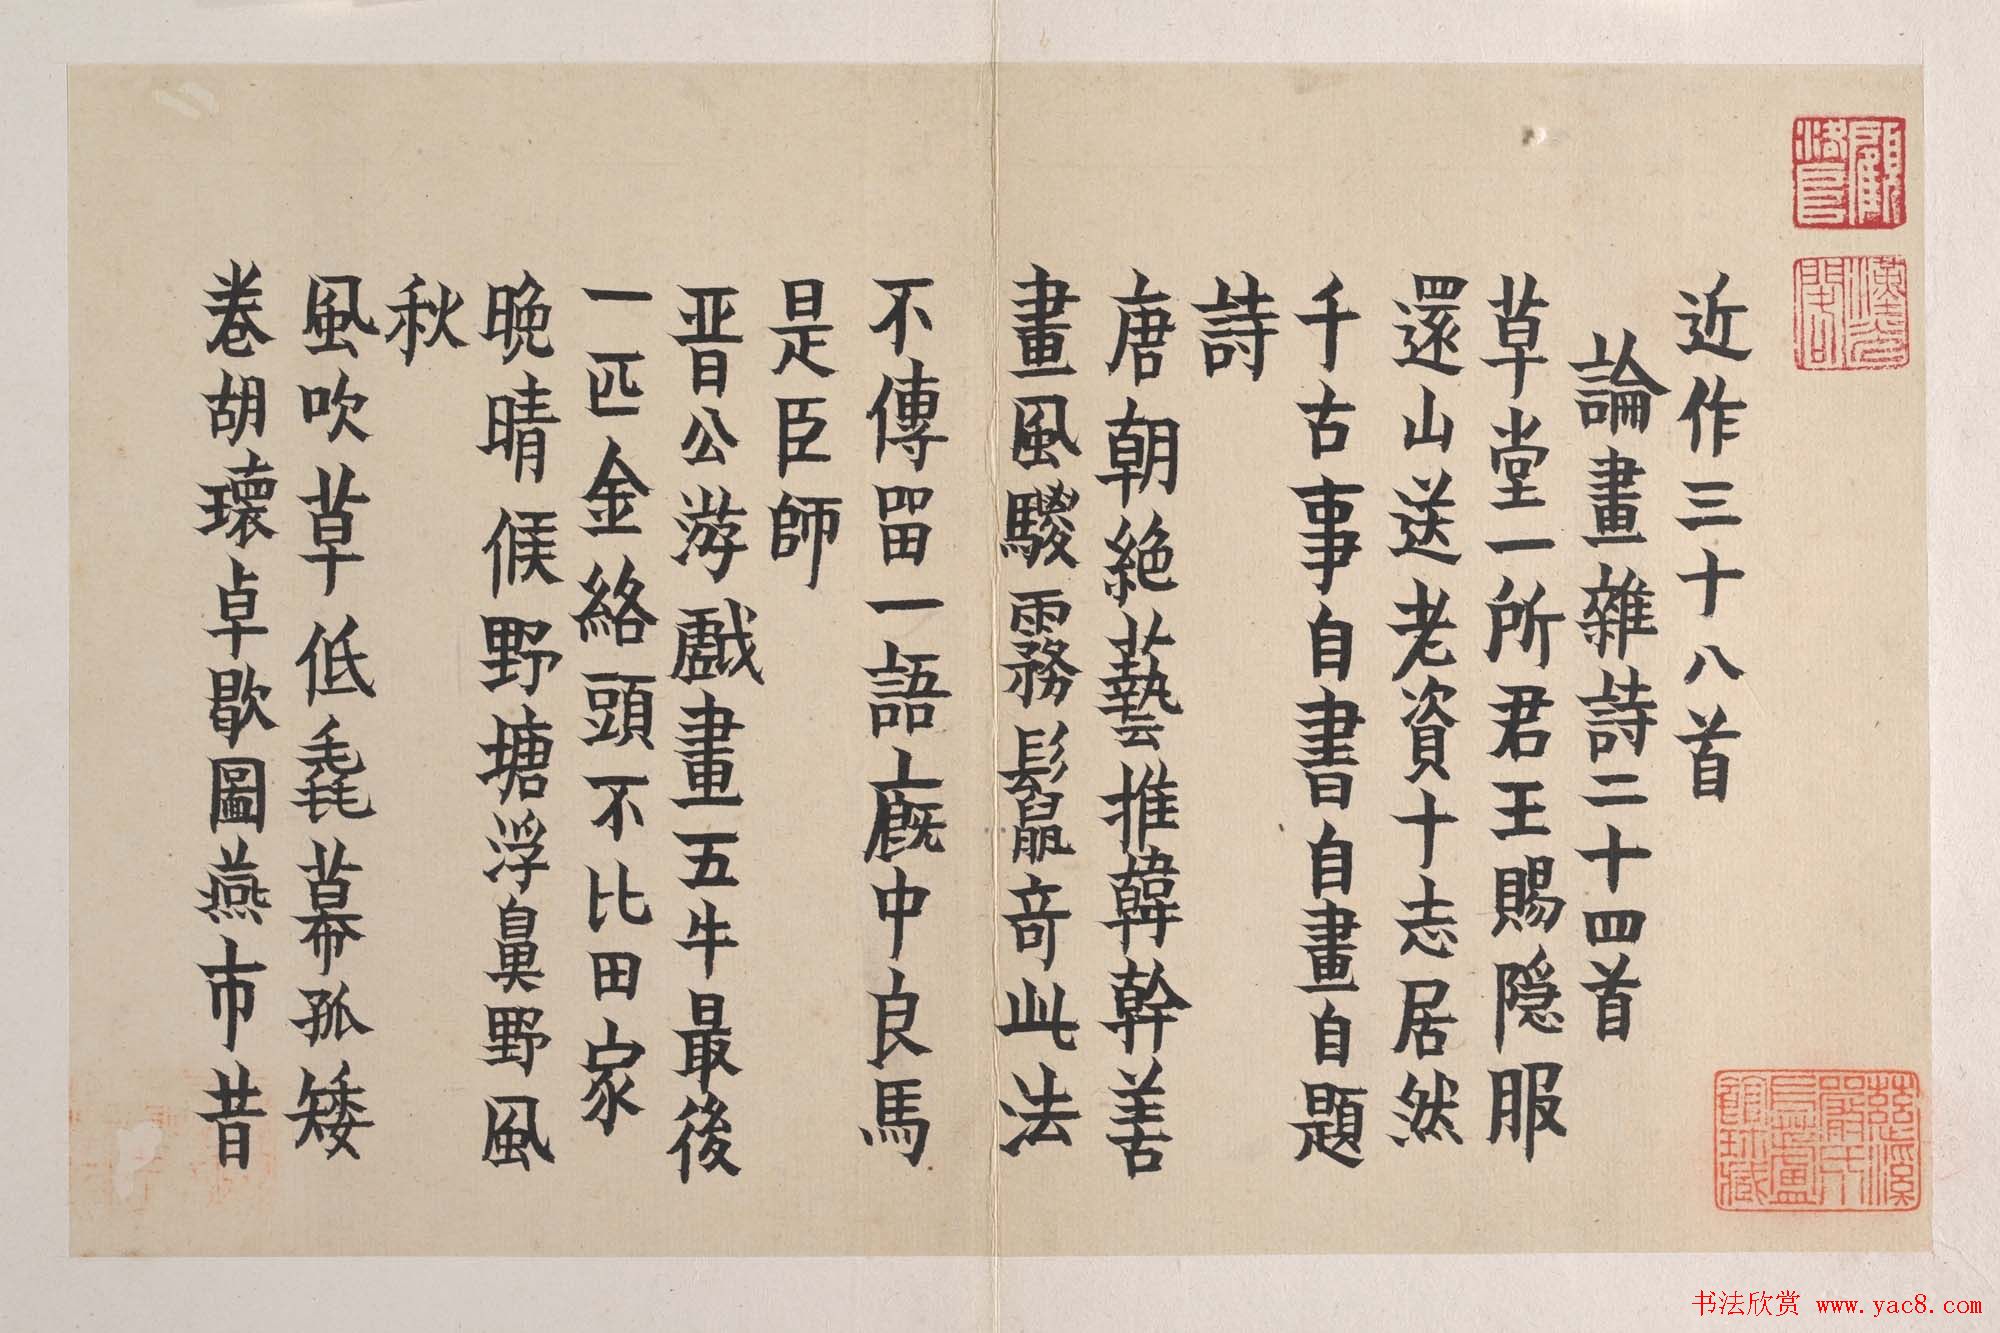 近作三十八首
論畫雜詩二十四首
草堂一所君王賜隠服
還山送老資十志居然
千古事自書自畫自題
詩
唐朝絶藝推韓幹善
畫風騣霧鬛奇此法
不傳留一語廐中良馬
是臣師
晉公游戲畫五牛最後
一匹金絡頭不比田家
晚晴候野塘浮鼻野風
秋
風吹草低毳幕孤矮
卷胡瓌卓歇圖燕市昔
顧洛阜
漢光閣
书法欣赏 www.yac8.com